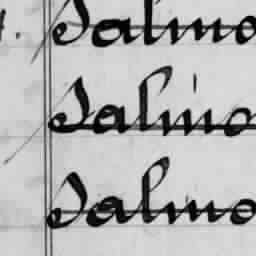 1. Salmo
Salmo
Salmo